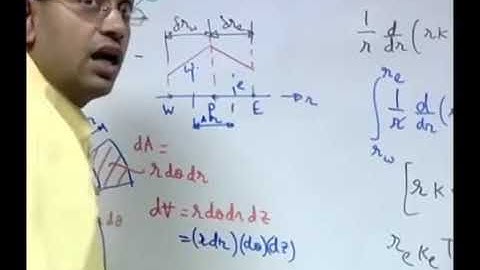 δr_w δr_e
Ψ e
W P E r
Δr
dA =
r dθ dr
dθ
d∀ = r dθ dr dz
= (r dr) (dθ) (dz)
1/r d/dr ( r k
∫_{r_w}^{r_e} 1/r d/dr (
[ r k
r_e k_e T